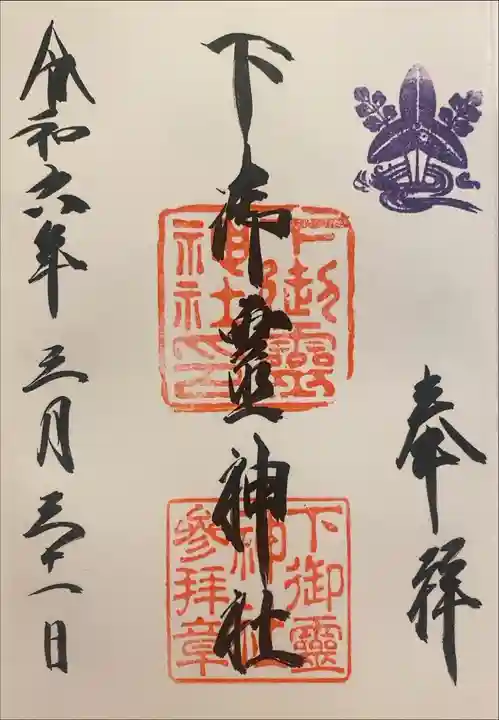 奉拝
下御靈神社
令和六年三月三十一日
下御靈神社印
下御靈神社参拝章